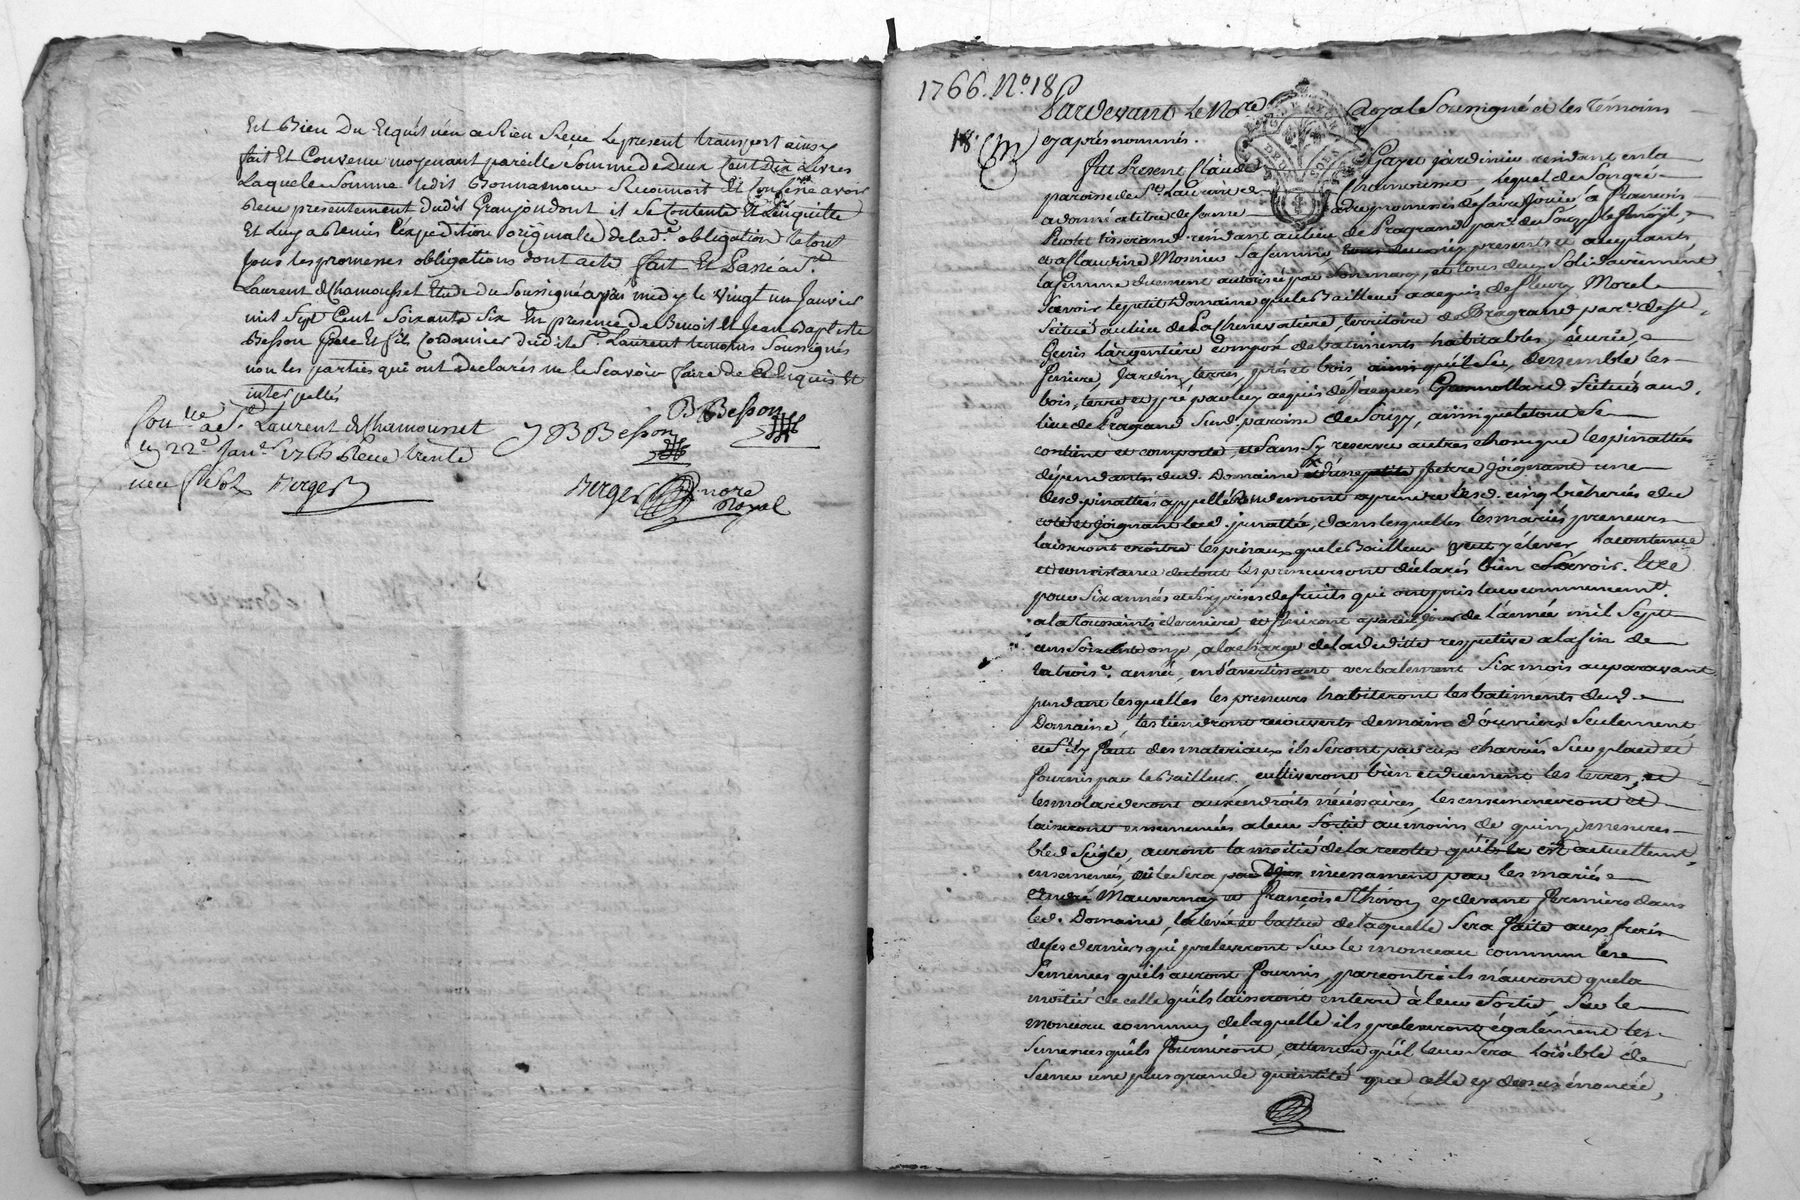 Est Bien Du Requis n'en a Rien Reçue Le present transport ainsy
fait Et Convenu moyenant pareille Somme de Deux Cent Dix Livres
Laquele Somme ledit Bonnamour Reconnoit Et Confesse avoir
Reçue presentement dudit Granjon dont il se Contente Et L'enquitte
Et Luy a Remis L'expedition originalle de lad.e obligation le tout
sous Les promesses obligations dont acte fait Et Passé a St
Laurent de Chamousset Etude du Soussigné apres midy le vingt un Janvier
mil Sept Cent Soixante Six En presence de Benoit Et Jean Baptiste
Besson Pere Et fils Cordonnier dudit St Laurent temoins Soussignés
non les parties qui ont Declarés ne le Scavoir faire de Ce Enquis Et
interpellés
Con.lle a St Laurent de Chamousset
le 22e Janer 1766 Reçu trente
neuf Sols Berger
B Besson
J B Besson
Berger nore
Royal
1766. No 18
Pardevant Le Nore Royal Soussigné et les Témoins
18. cy après nommés.
Fut Present Claude Gayet jardinier résidant en la
paroisse de St Laurent de Chamousset, lequel de Son gré
a donné a titre de ferme avec promesses de faire jouir à François
tisserand résidant au lieu de Pragrand par.e de Souzy
et a Claudine Mosnier Sa femme, tous deux icy presents et aceptants
la femme duement autorisée par Son mary, et tous deux Solidairement
Scavoir le petit Domaine que le Bailleur a acquis de Fleury Morel
Scitué au lieu de La Chenevatiere, territoire de Pragrand par.e de St
Genis L'argentière Composé de batiments habitables, écurie,
feniere, Jardin, terres, prés et bois, ainsi qu'il Se, densemble les
bois, terre et pré par luy acquis de Jacques Scitués aud.
lieu de Pragrand Sud. paroisse de Souzy, ainsi que le tout Se
contient et comporte, et Sans S'y reserver autres chose que les pinattés
dépendants dud. Domaine joignant une
desd. pinattés appellé
coté et joignant lesd. pinattée, dans lesquelles les mariés preneurs
laisseront croitre les pineaux que le Bailleur veut y élever La contenue
et consistance du tout les preneurs ont déclarés bien Scavoir. Et ce
pour Six années et Six prises de fruits qui ont pris leur commencement
a la Toussaints derniere et finiront a pareil jour de L'année mil Sept
cens Soixante onze, a la charge de la deditte respective a la fin de
la trois.e année, en S'avertissant verbalement Six mois auparavant
pendant lesquelles les preneurs habiteront les batiments dud.
Domaine, les tiendront recouverts de mains d'ouvriers Seulement,
et S'il y faut des materiaux ils Seront par eux charriés Sur place et
fournis par le Bailleur, cultiveront bien et duement les terres, et
les molarderont aux endroits nécessaires, les ensemenceront et
laisseront ensemencées a leur Sortie au moins de quinze mesures
bled Seigle, auront la moitié de la recolte qu'il est actuellement
ensemencés, ou le Sera incessament par les mariés
André Mauvernay et François Thivoy cy devant Fermiers dans
led. Domaine, la levée et battue de laquelle Sera faite aux fraix
de ces derniers qui preleveront Sur le monceau commun les
Semences qu'ils auront fournis, par contre ils n'auront que la
moitié de celle qu'ils laisseront enterre à leur Sortie, Sur le
monceau commun de laquelle ils preleveront également les
Semences qu'ils fourniront, attendu qu'il leur Sera loisible de
Semer une plus grande quantité que celle cy dessus énoncée,